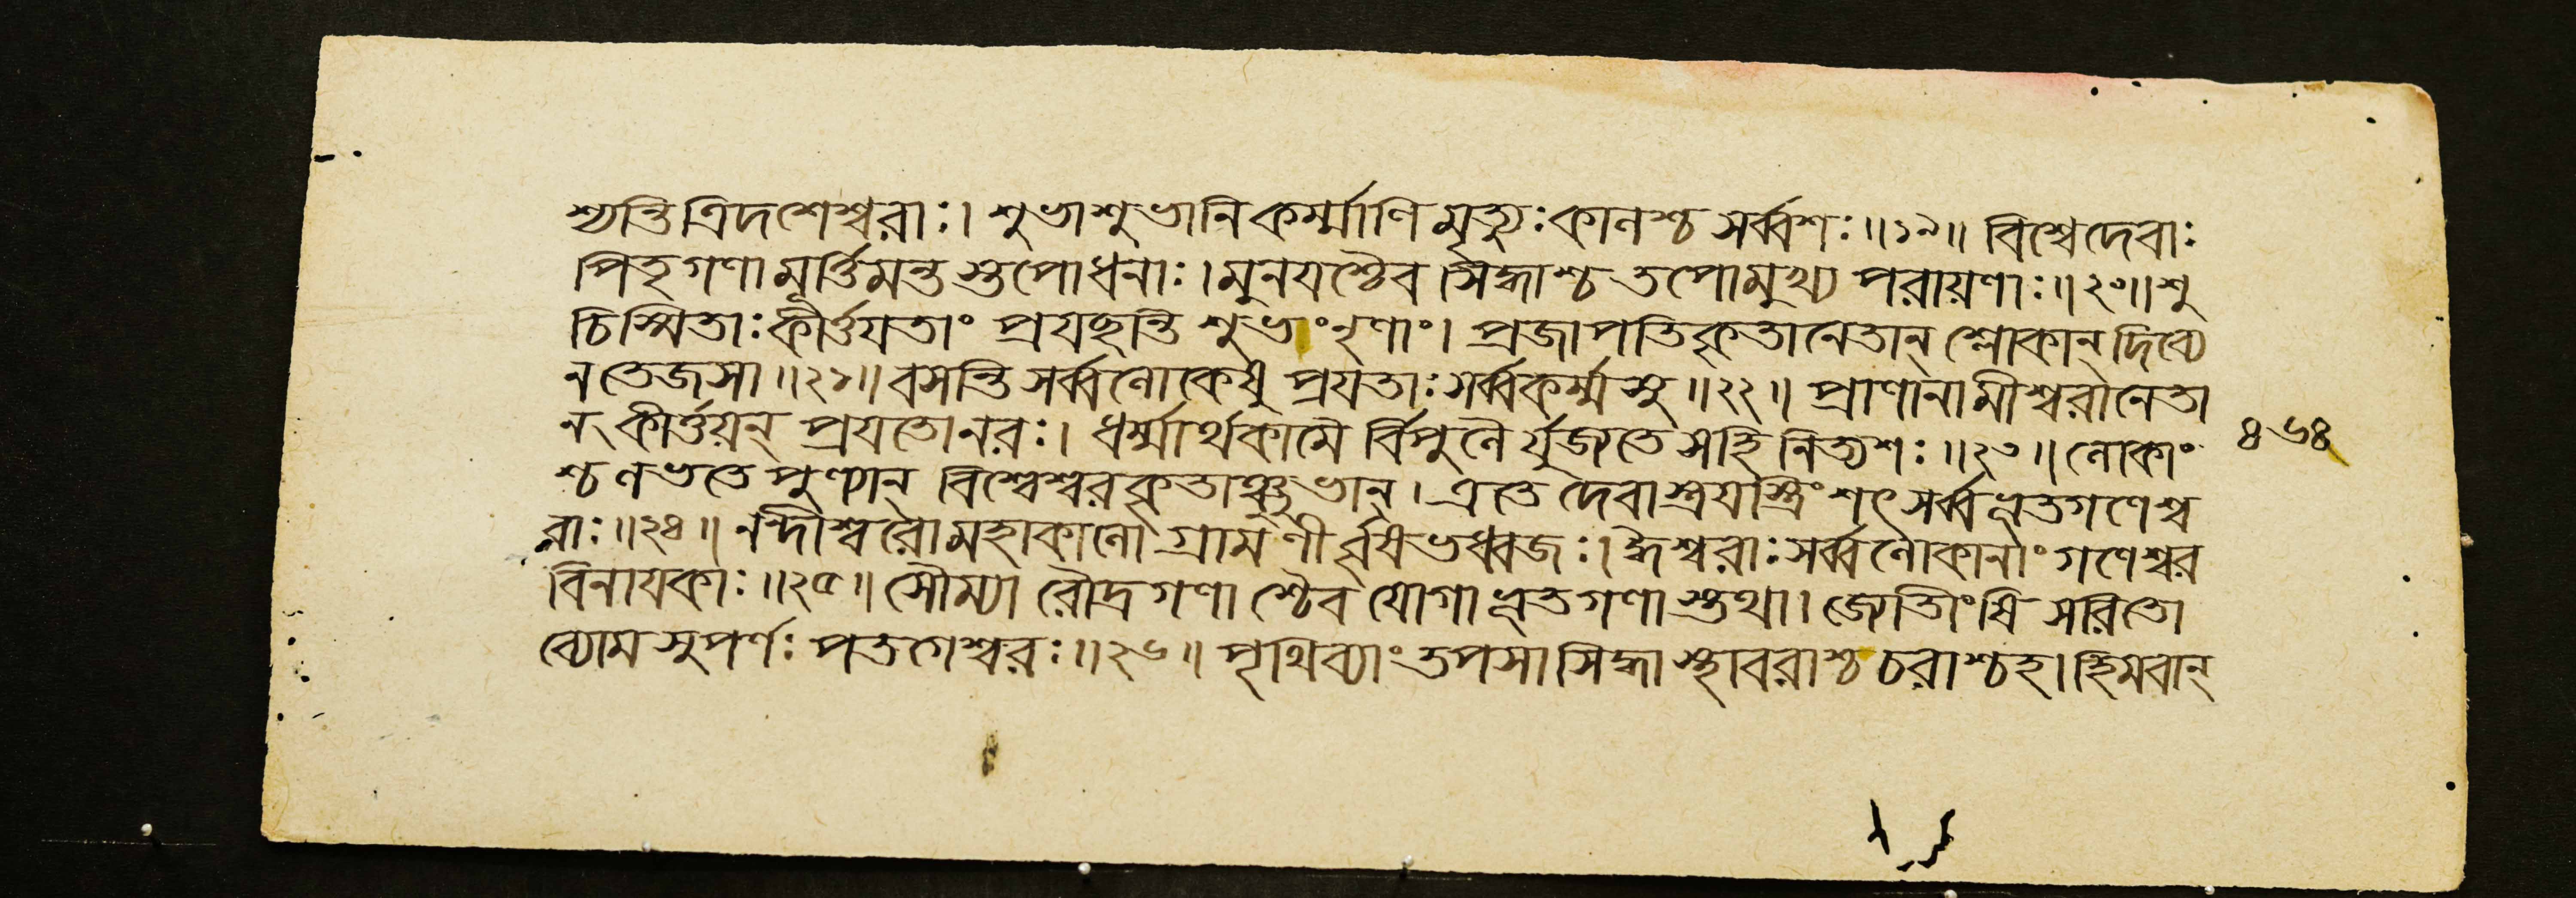 শ্যন্তি ত্রিদশেশ্বরাঃ। শুভাশুভানি কর্ম্মাণি মৃত্যুঃ কালশ্চ সর্ব্বশঃ॥১৯॥ বিশ্বেদেবাঃ
পিতৃগণা মূর্ত্তিমন্তস্তপোধনাঃ। মুনযশ্চৈব সিদ্ধাশ্চ তপোমুখ্য পরায়ণাঃ॥২০॥ শু
চিস্মিতাঃ কীর্ত্তযতাং প্রযচ্ছন্তি শুভাং নৃণাং। প্রজাপতিকৃতানেতান্ শ্লোকান্ দিব্যে
ন তেজসা॥২১॥ বসন্তি সর্ব্বলোকেষু প্রযতাঃ সর্ব্বকর্ম্মসু॥২২॥ প্রাণানামীশ্বরানেতা
ন্ কীর্ত্তয়ন্ প্রযতোনরঃ। ধর্ম্মার্থকামৈর্বিপুলৈর্যুজ্যতে সহি নিত্যশঃ॥২৩॥ লোকাং
শ্চ লভতে পুণ্যান্ বিশ্বেশ্বরকৃতাঞ্চুভান্। এতে দেবাস্ত্রযস্ত্রিংশৎ সর্ব্বভূতগণেশ্ব
রাঃ॥২৪॥ নন্দীশ্বরোমহাকালো গ্রামণীর্ব্বৃষভধ্বজঃ। ঈশ্বরাঃ সর্ব্বলোকানাং গণেশ্বর
বিনাযকাঃ॥২৫॥ সৌম্যা রৌদ্রগণাশ্চৈব যোগাভূতগণাস্তথা। জ্যোতীংষি সরিতো
ব্যোম সুপর্ণঃ পতগেশ্বরঃ॥২৬॥ পৃথিব্যাং তপসা সিদ্ধা স্থাবরাশ্চ চরাশ্চহ। হিমবান্
৪৬৪